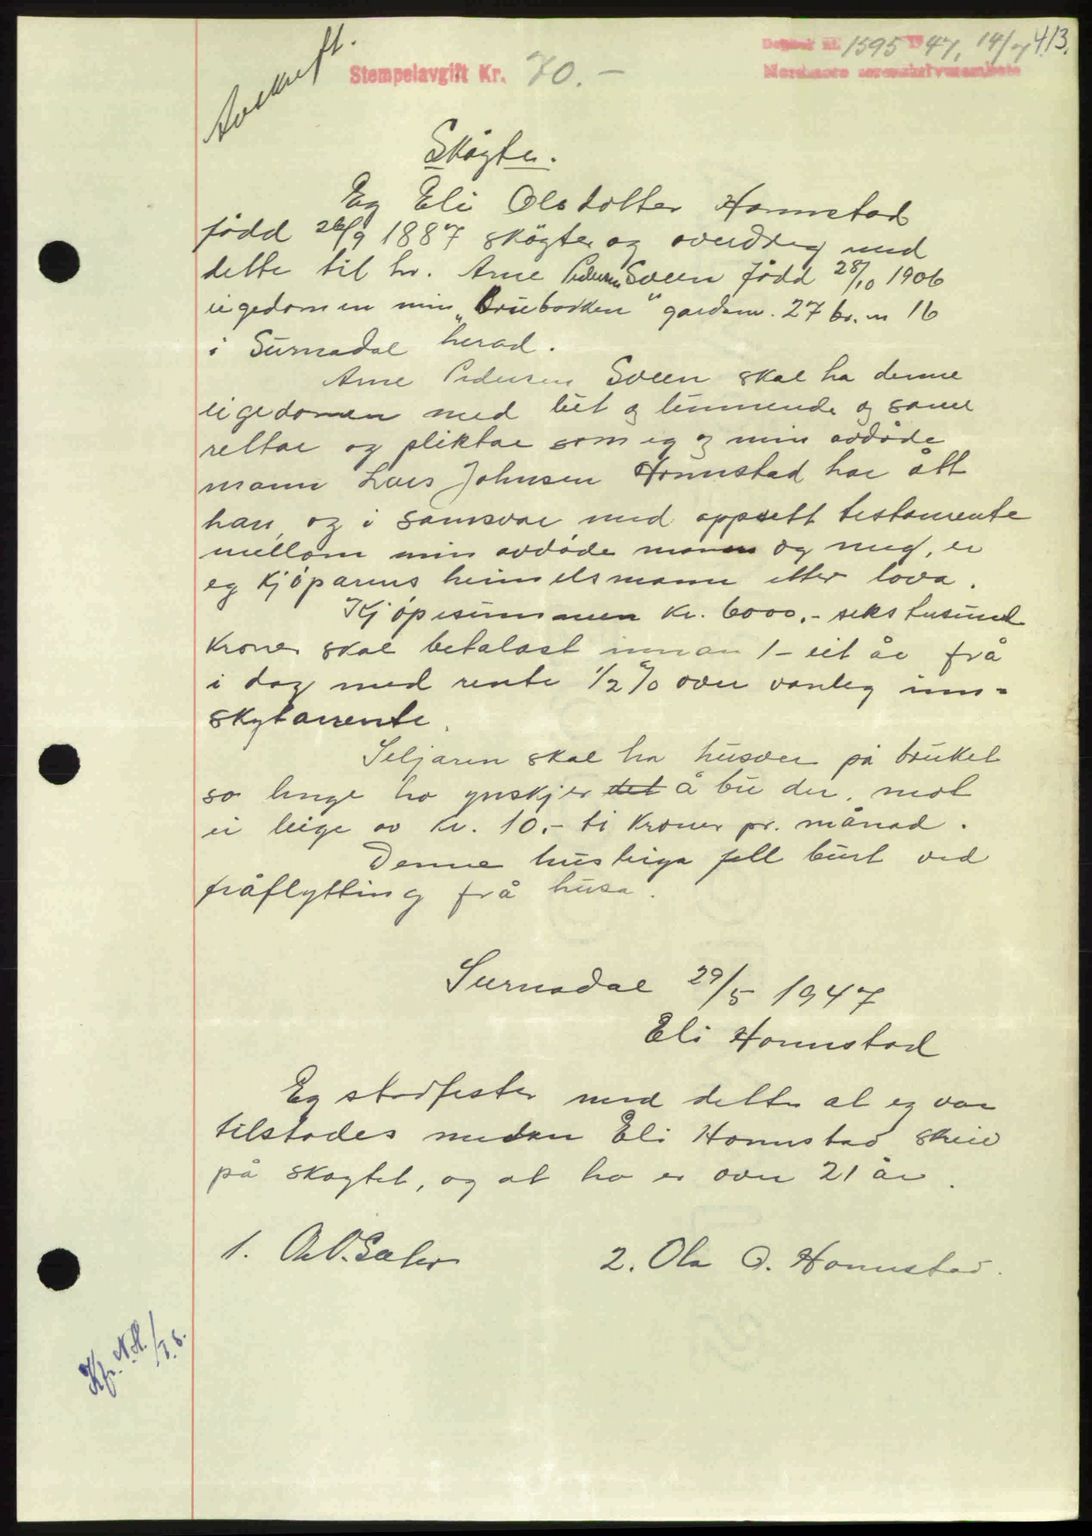 Avskrift.
Stempelavgift Kr. 70.-
Dagbok nr. 1595 1947, 14/7 413.
Nordmøre sorenskriverembete
Skøyte.
Eg Eli Olsdotter Honnstad
född 26/9 1887 skøyter og overdreg med
dette til hr. Arne Pedersen Sveen född 28/10 1906
eigedomen min „Brubakken" gardsnr. 27 br.nr 16
i Surnadal herad.
Arne Pedersen Sveen skal ha denne
eigedomen med lut og lunnende og same
rettar og pliktar som eg og min avdøde
mann Lars Johnsen Honnstad har ått
han, og i samsvar med oppsett testamente
mellom min avdøde mann og meg, er
eg kjøparens heimelsmann etter lova.
Kjøpesummen kr. 6000,- seks tusund
kroner skal betalast innan 1- eit år frå
i dag med rente 1/2 % over vanleg inn-
skytarrente.
Seljaren skal ha husvær på bruket
so lenge ho ynskjer det å bu der, mot
ei leige av kr. 10,- ti kroner pr. månad.
Denne husleiga fell burt ved
fråflytting frå husa.
Surnadal 29/5 1947
Eli Honnstad
Eg stadfester med dette at eg var
tilstades medan Eli Honnstad skreiv
på skøytet, og at ho er over 21 år.
1. O. Sæter
2. Ola O. Honnstad.
Kfr. N.H. /